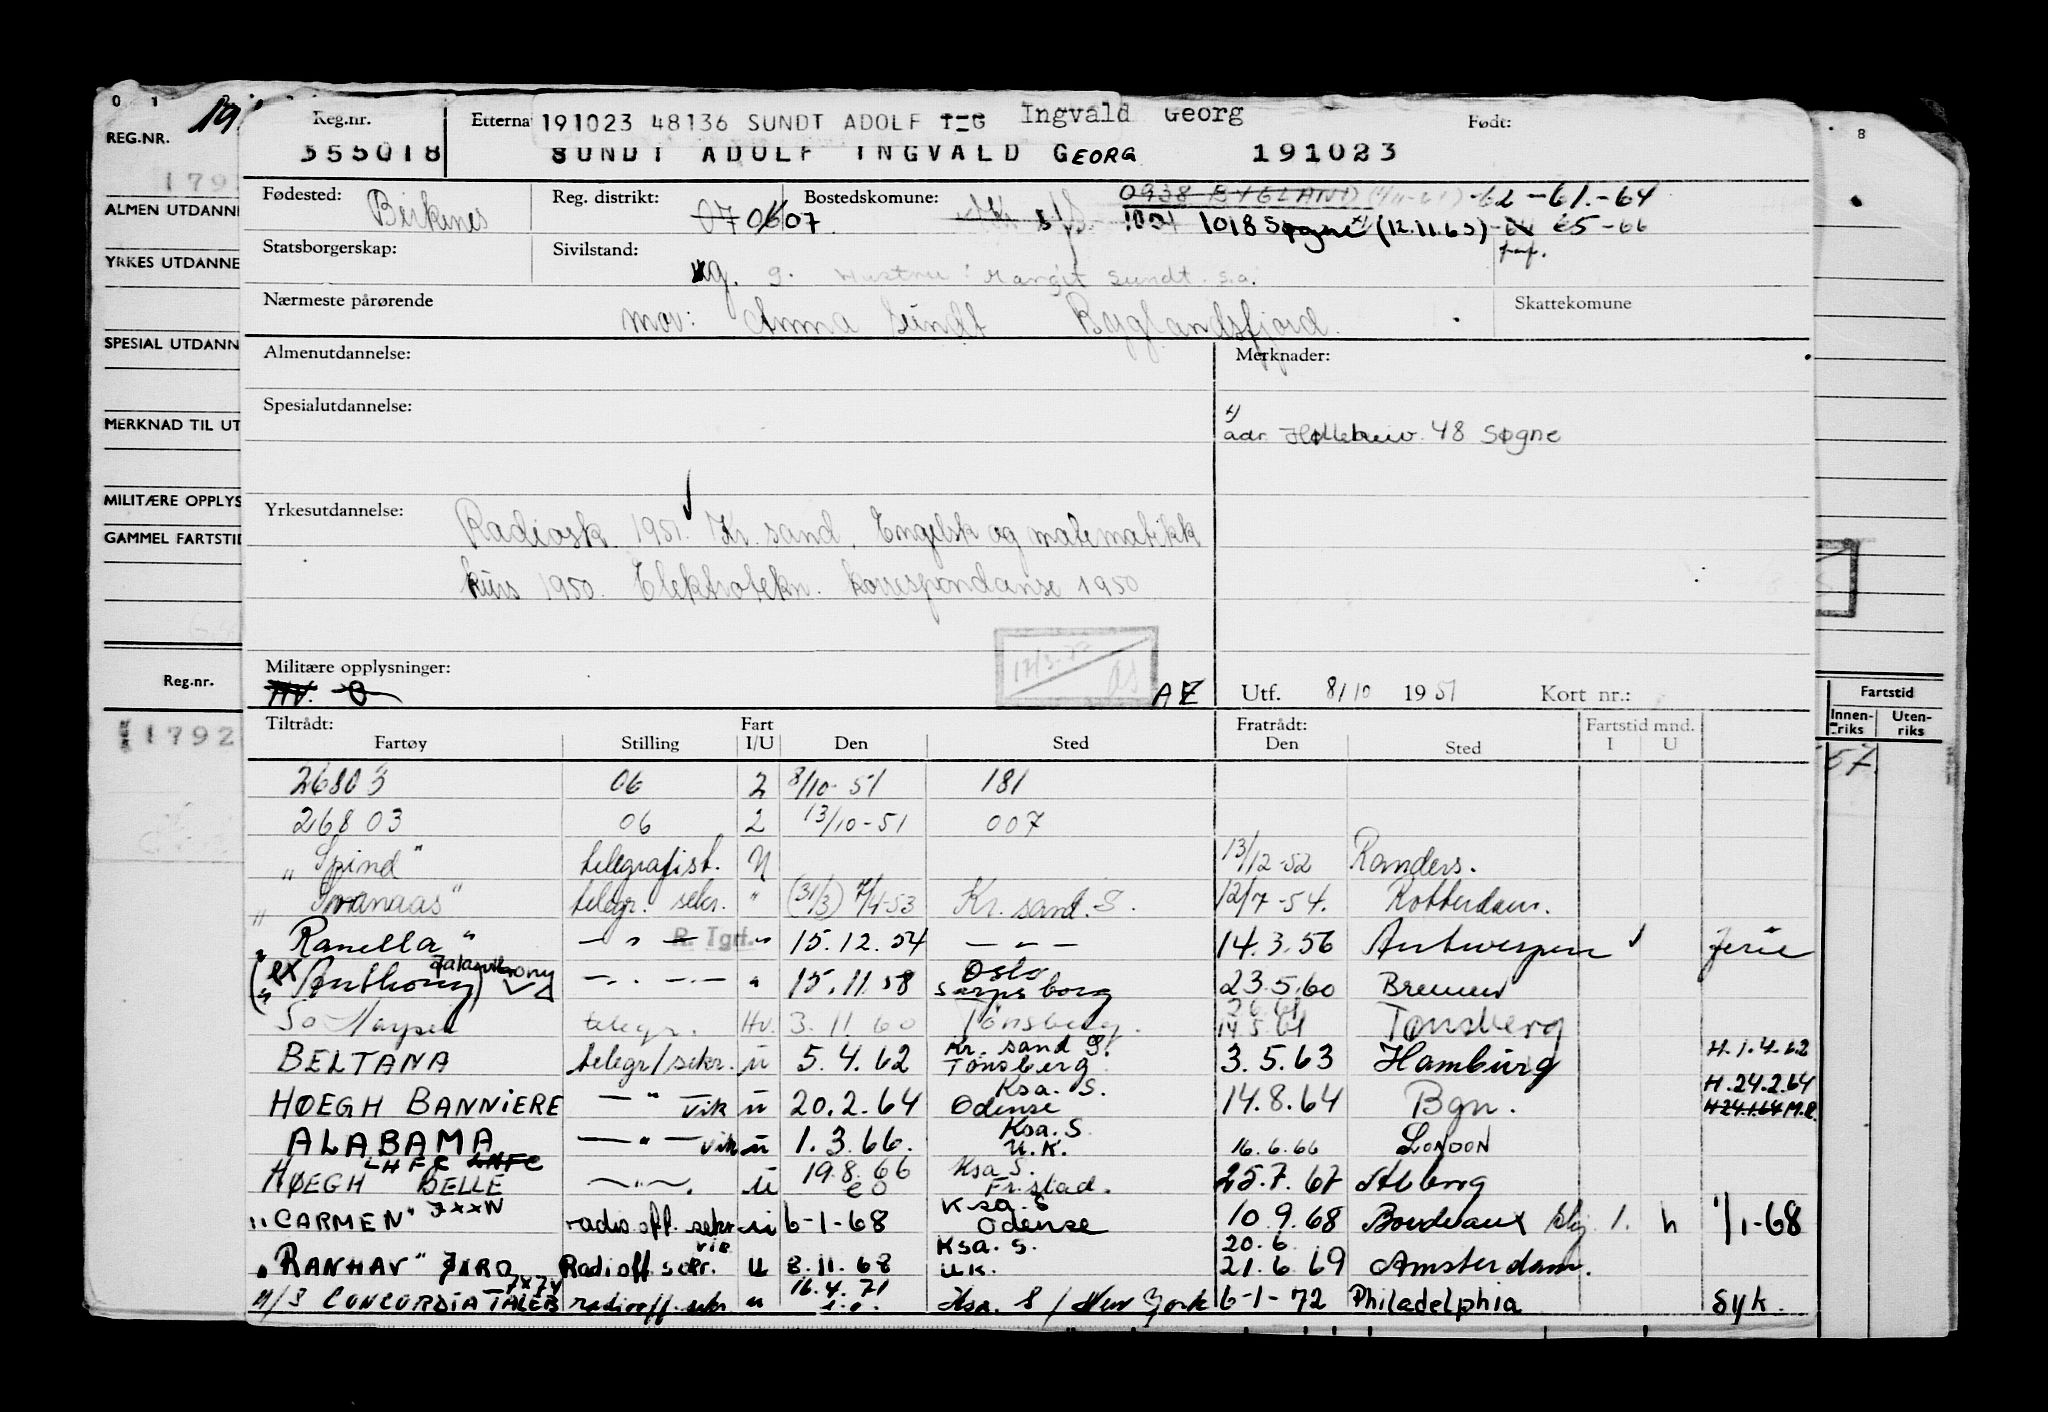 0 1
8
REG.NR. 19
1792
ALMEN UTDANNE
YRKES UTDANNE
SPESIAL UTDANN
MERKNAD TIL UT
MILITÆRE OPPLYS
GAMMEL FARTSTID
Reg.nr.
11792
Fartstid
Innen-riks Uten-riks
57.
Reg.nr. Etterna 191023 48136 SUNDT ADOLF I-G Ingvald Georg Født:
355018 SUNDT ADOLF INGVALD GEORG 191023
Fødested: Birkenes Reg. distrikt: 07 06 07 Bostedskommune: 0938 BYGLAND -62-61.-64
1018 Søgne x) (12.11.65) 65-66
Statsborgerskap: Sivilstand: ug. g. Hustru: Margit Sundt. s.a.
Nærmeste pårørende mor: Anna Sundt Byglandsfjord. Skattekomune
Almenutdannelse: Merknader:
Spesialutdannelse: x) adr. 48 Søgne
Yrkesutdannelse: Radiosk. 1951. Kr. sand. Engelsk og matematikk
kurs 1950. Elektrotekn. korrespondanse 1950
Militære opplysninger: AE Utf. 8/10 1951 Kort nr.:
HV.
Tiltrådt: Fart Fratrådt: Fartstid mnd.
Fartøy Stilling I/U Den Sted Den Sted I U
26803 06 2 8/10-51 181
26803 06 2 13/10-51 007
"Spind" telegrafist. U 13/12-52 Randers.
"Svanaas" telegr. sekr. " (31/3) 7/4-53 Kr. sand. S. 12/7-54. Rotterdam.
"Ranella" — " — R. Tgrf. " 15.12.54 — " — 14.3.56 Antwerpen ferie
(ex "Anthony) — " — " 15.11.58 Oslo Sarpsborg 23.5.60 Bremen
telegr. Hv. 3.11.60 Tønsberg. 14.5.61 Tønsberg
BELTANA telegr/sekr. u 5.4.62 Kr. sand S. Tønsberg 3.5.63 Hamburg H.1.4.62
HØEGH BANNIERE — " — vik u 20.2.64 Ksa. S. Odense 14.8.64 Bgn. H.24.2.64
H24.1.64 M.R.
ALABAMA — " — vik u 1.3.66. Ksa. S. U.K. 16.6.66 LONDON
HØEGH BELLE LHFC LHFC — " — u 19.8.66 eo Ksa S. Fr.stad. 25.7.67 Ålborg
"CARMEN" JXXN radio off. sekr. u 6-1-68 Ksa. S Odense 10.9.68 Bordeaux 1. h 1/1-68
"RANHAV" JXRO Radioff. sekr. vik U 8.11.68 Ksa. S. UK. 20.6 21.6.69 Amsterdam.
M/S CONCORDIA TALEB JXZV radiooff. sekr. " 16.4.71 e.o. Ksa. S / New York 6-1-72 Philadelphia Syk.